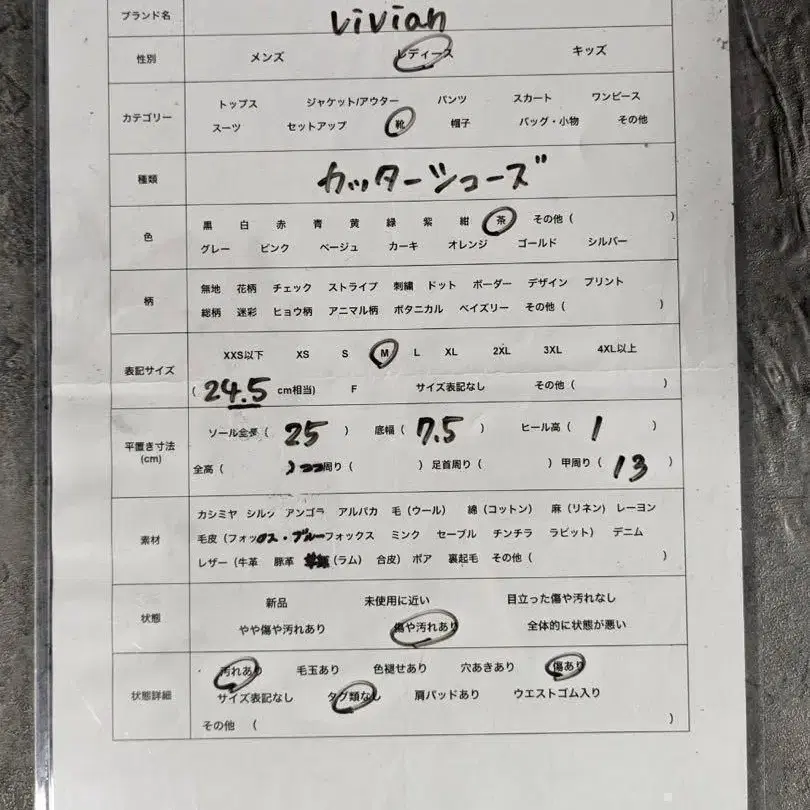 ブランド名 vivian
性別 メンズ レディース キッズ
カテゴリー トップス ジャケット/アウター パンツ スカート ワンピース
スーツ セットアップ 靴 帽子 バッグ・小物 その他
種類 カッターシューズ
色 黒 白 赤 青 黄 緑 紫 紺 茶 その他 ( )
グレー ピンク ベージュ カーキ オレンジ ゴールド シルバー
柄 無地 花柄 チェック ストライプ 刺繍 ドット ボーダー デザイン プリント
総柄 迷彩 ヒョウ柄 アニマル柄 ボタニカル ペイズリー その他 ( )
表記サイズ XXS以下 XS S M L XL 2XL 3XL 4XL以上
( 24.5 cm相当) F サイズ表記なし その他 ( )
平置き寸法 (cm) ソール全長 ( 25 ) 底幅 ( 7.5 ) ヒール高 ( 1 )
全高 ( ) 周り ( ) 足首周り ( ) 甲周り ( 13 )
素材 カシミヤ シルク アンゴラ アルパカ 毛 (ウール) 綿 (コットン) 麻 (リネン) レーヨン
毛皮 (フォックス・ブルーフォックス ミンク セーブル チンチラ ラビット) デニム
レザー (牛革 豚革 (ラム) 合皮) ボア 裏起毛 その他 ( )
状態 新品 未使用に近い 目立った傷や汚れなし
やや傷や汚れあり 傷や汚れあり 全体的に状態が悪い
状態詳細 汚れあり 毛玉あり 色褪せあり 穴あきあり 傷あり
サイズ表記なし タグ類なし 肩パッドあり ウエストゴム入り
その他 ( )